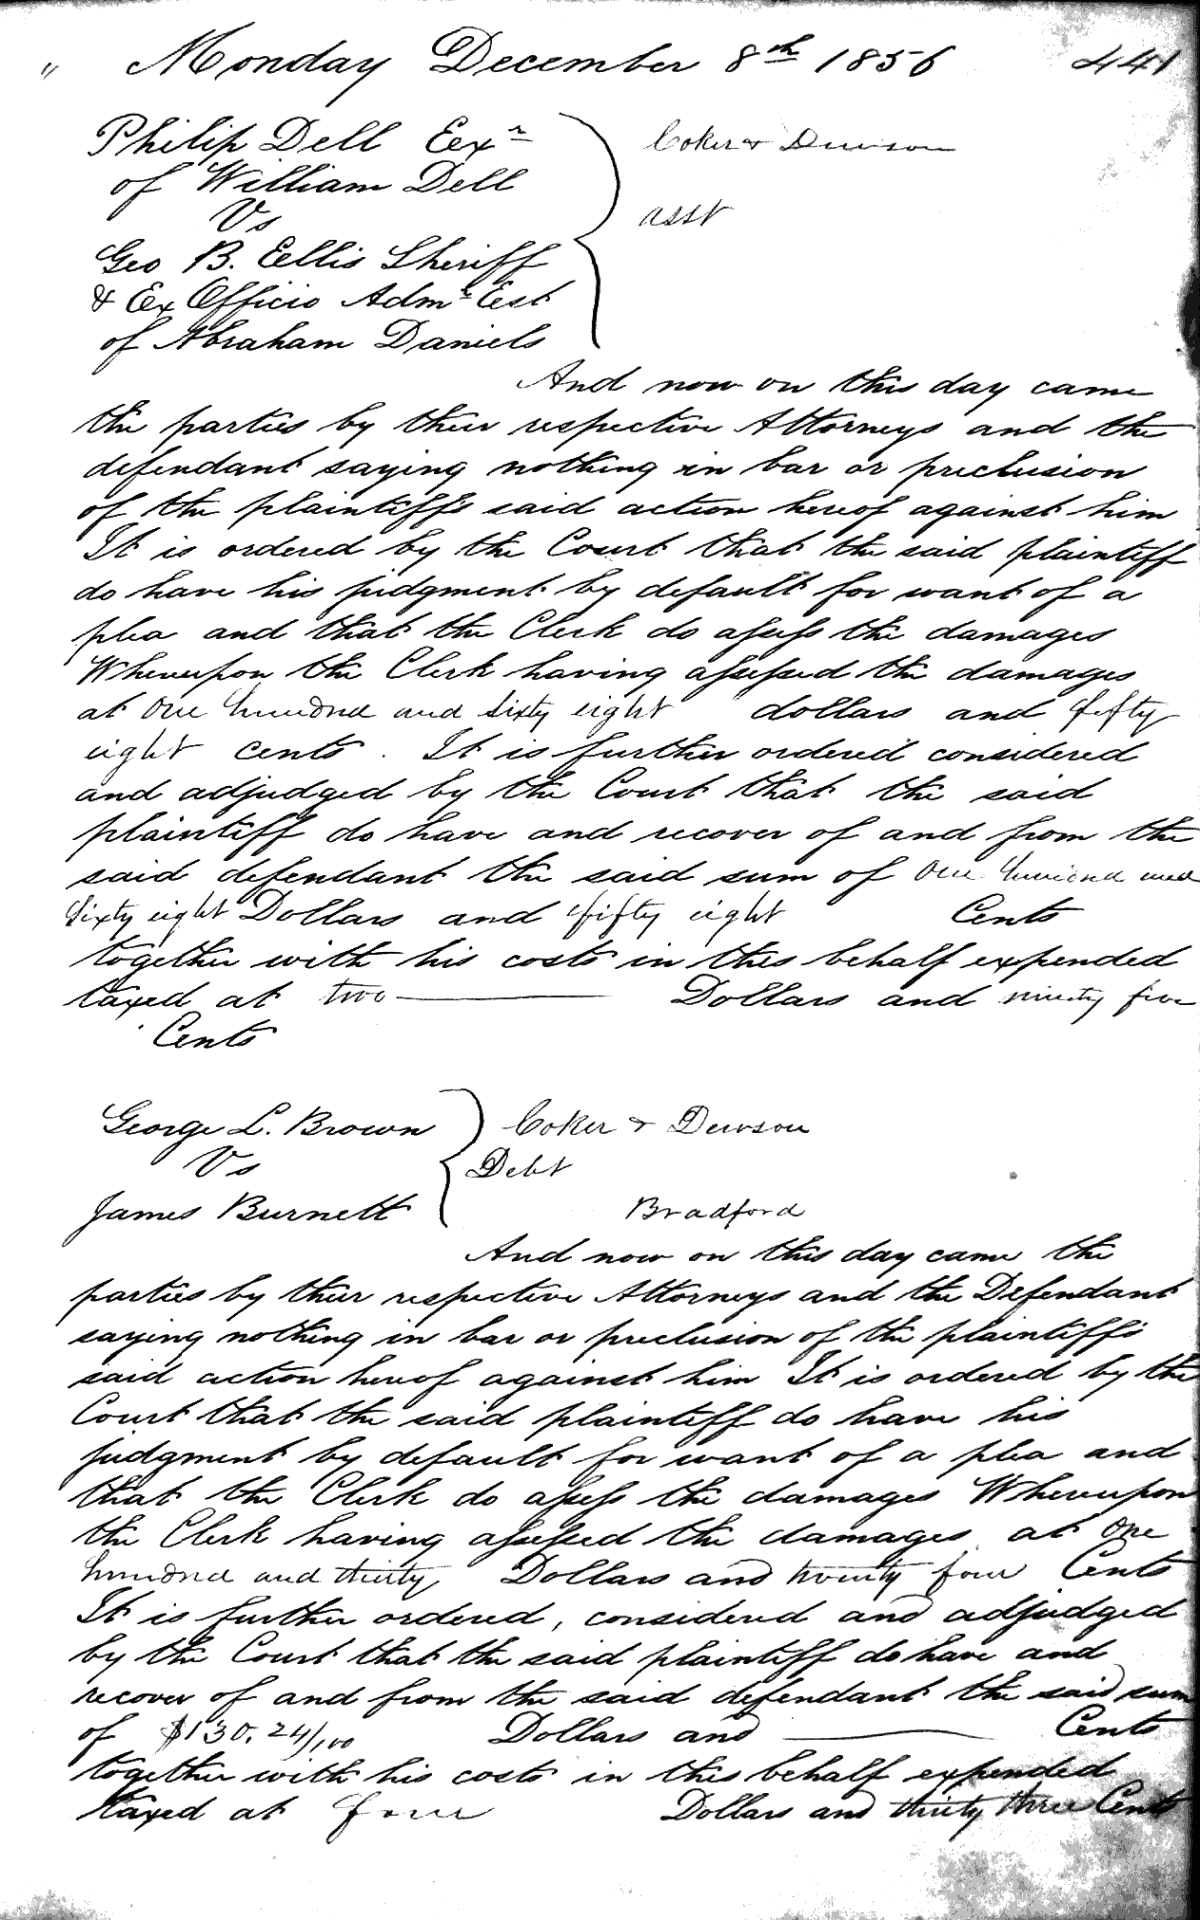 " Monday December 8th 1856 441
Philip Dell Eexr Coker & Dewson
of William Dell
Vs asst
Geo B. Eellis Sheriff
& Ex Officio Admr Est
of Abraham Daniels
And now on this day came
the parties by their respective Attorneys and the
defendant saying nothing in bar or preclusion
of the plaintiffs said action hereof against him
It is ordered by the Court that the said plaintiff
do have his judgment by default for want of a
plea and that the Clerk do assess the damages
Whereupon the Clerk having assessed the damages
at One hundred and sixty eight dollars and fifty
eight cents. It is further ordered considered
and adjudged by the Court that the said
plaintiff do have and recover of and from the
said defendant the said sum of One hundred and
Sixty eight Dollars and fifty eight Cents
together with his costs in this behalf expended
taxed at two Dollars and ninety five
Cents
George L. Brown Coker & Dewson
Vs Debt
James Burnett Bradford
And now on this day came the
parties by their respective Attorneys and the Defendant
saying nothing in bar or preclusion of the plaintiffs
said action hereof against him It is ordered by the
Court that the said plaintiff do have his
judgment by default for want of a plea and
that the Clerk do assess the damages Whereupon
the Clerk having assessed the damages at One
hundred and thirty Dollars and twenty four Cents
It is further ordered, considered and adjudged
by the Court that the said plaintiff do have and
recover of and from the said defendant the said sum
of $130.24/100 Dollars and Cents
together with his costs in this behalf expended
taxed at four Dollars and thirty three Cents